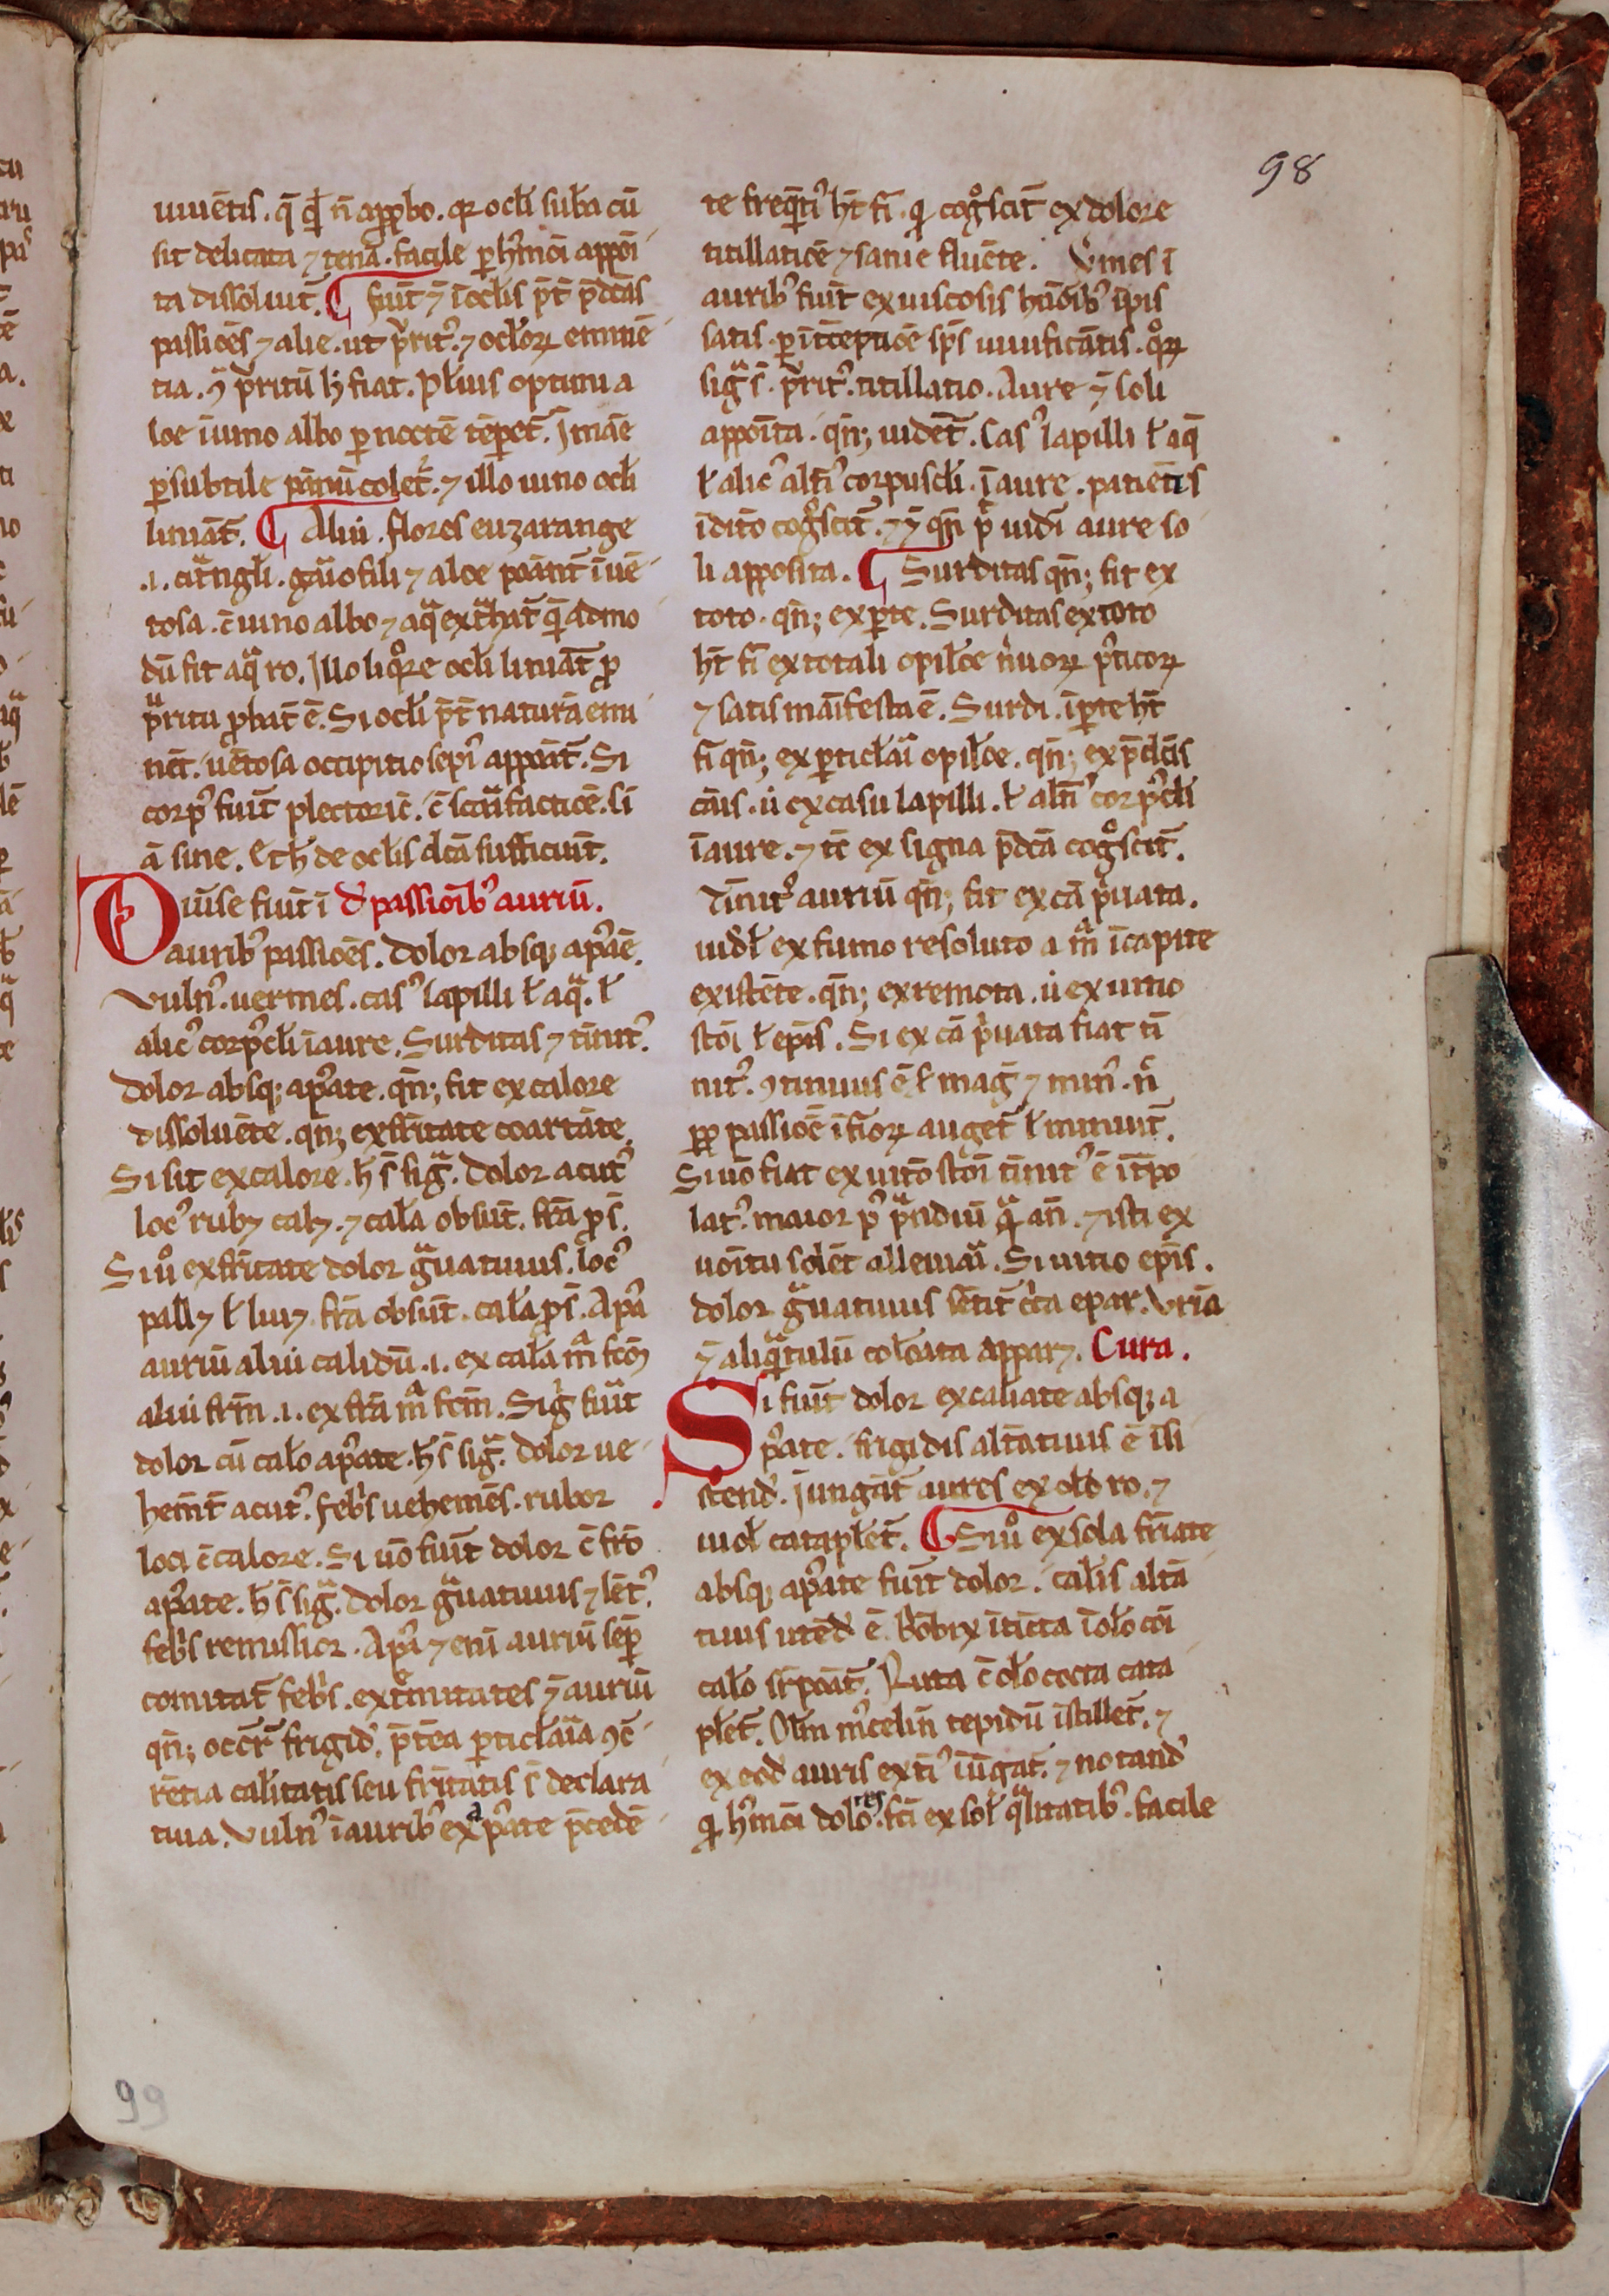 98
uiuētis . q̄ q̄ n̄ appbo . qr ocłi suba cū
sit delicata ⁊ tenā . facile p hmōi appoī
ta dissoluit̄ . ¶ fiūt ⁊ ī oclis p̄t p̄dcās
passiōes ⁊ alie . ut prit⁹ . ⁊ ocłorꝝ eminē
tia . ꝯ p̄ritū h̄ fiat . pł'ius optimi a
loe ī uino albo p noctē tēpet̄ . J māe
p subtile pānū colet̄ . ⁊ illo uino ocłi
liniāt̄ . ¶ Alii . flores euzarange
.i. citrāgłi . gaīofili ⁊ aloe poānt̄ ī uē
tosa . c̄ uino albo ⁊ aq̄ extͣhat̄ q̄ admo
dū fit aq̄ ro . Jllo liq̊re ocłi liniāt̄ ꝓ
pͣritu ꝓbat̄ ē . Si ocłi p̄t naturā emi
nēt . uētosa occipitio sepi⁹ appoāt̄ . Si
corp⁹ fuit̄ plectoric̄ . c̄ scarifactiōe . si
ā sine . Et h̄ de oclis dcā sufficiūt .
Diuise fiūt ī d' passioīb⁹ auriū .
aurib⁹ passiōes . Dolor absq; ap̄aē .
Vuln⁹ . uermes . cas⁹ lapilli ł aqͣ . ł
alic⁹ corp̄cłi ī aure . Surditas ⁊ tīnit⁹ .
Dolor absq; apͣate . qn̄; fit ex calore
dissoluēte . qn̄; ex fritate coartāte .
Si sit ex calore . h̄ s̄ sigͣ . Dolor acut⁹
loc⁹ rubꝫ calꝫ . ⁊ cala obsūt . frā ꝓs̄ .
Si ů ex fritate dolor gͣuatiuus . loc⁹
pallꝫ ł liuꝫ . frā obsūt . cala ꝓs̄ . Apͣ
auriū aliū calidū .i. ex cala mͣ fcō
aliū frm̄ .i. ex frā mͣ fcm̄ . Sig̓ fūit̄
dolor cū calo apͣate . h̄ s̄ sigͣ . dolor ue
hem̄t acut⁹ . febⁱs uehemēs . rubor
loci c̄ calore . Si uō fuit̄ dolor c̄ fro
apͣate . h̄ s̄ sigͣ . dolor gͣuatiuus ⁊ lēt⁹ .
febⁱs remissior . Apͣ ⁊ enī auriū sēp
comitat̄ febⁱs . extͥmitates ⁊ auriū
qn̄; occr̄t frigid' . p̄tēa pticłaīa ꝯc̄
rētia calitatis seu fritatis s̄ declara
tiua . Vuln⁹ ī aurib⁹ ex apͣate p̄cedē
te freq̄ti⁹ h̄t fī . q̇ cog̊scit̄ ex dolore
titillatiōe ⁊ sanie fluēte . Vmes ī
aurib⁹ fiūt ex uiscosis hūoīb⁹ ip̄is
satis . p ītceptōe sp̄s uiuificātis . q̊rꝝ
sigͣ s̄ . p̄rit⁹ . titillatio . Aure ⁊ soli
appoīta . qn̄; uidēt̄ . Cas⁹ lapilli ł aq̄
ł alic⁹ alti⁹ corpuscłi . ī aure . patiētis
īditō cog̊scit̄ . ⁊ ⁊ qn̄ p̄ uidī aure so
li apposita . ¶ Surditas qn̄; fit ex
toto . qn̄; ex pte . Surditas ex toto
h̄t fī ex totali opilōe nuorꝝ p̄ticorꝝ
⁊ satis maīfesta ē . Surdi . ī pte h̄t
fī qn̄; ex pticlāi opilōe . qn̄; ex p̄dcīs
cāis . ů ex casu lapilli . ł alti⁹ corp̄cłi
ī aure . ⁊ tc̄ ex signa p̄dcā cog̊scit̄ .
Tīnit⁹ auriū qn̄; fit ex cā p̓uata .
uidł ex fumo resoluto a mͣ ī capite
existēte . qn̄; ex remota . ů ex uitio
stōi ł epīs . Si ex cā p̓uata fiat tī
nit⁹ . ꝯtinuus ē ł mag̓ ⁊ min⁹ . n̄
ꝓp passiōe īfiorꝝ auget̄ ł minuit̄ .
Si uō fiat ex uitō stōi tīnit⁹ ē ītpo
lat⁹ . maior p⁹ pͣndiū q̄ an̄ . ⁊ isti ex
uoītu solēt alleuiāi . Si uitio epīs .
dolor gͣuatiuus sētit̄ cͥca epar . Vrīa
⁊ aliqͣtulū coloata apparꝫ . Cura .
Si fuit̄ dolor ex caliate absq; a
p̄ate . frigidis altatiuis ē īsi
stend' . Jungāt̄ aures ex olō ro . ⁊
uioł cataplet̄ . ¶ Si ů ex sola friate
absq; apͣate fuit̄ dolor . calīs altā
tiuis utēd' ē . Bōbix ītīcta ī olō cōi
calō sr̄poāt̄ . Ruta c̄ olō cocta cata
plet̄ . Olm̄ mͥcelin̄ tepidū īstillet̄ . ⁊
ex eod' auris exti⁹ iūgat̄ . ⁊ notand'
q̇ hmōi dolores . fcī ex soł qͣlitatib⁹ . facile
99